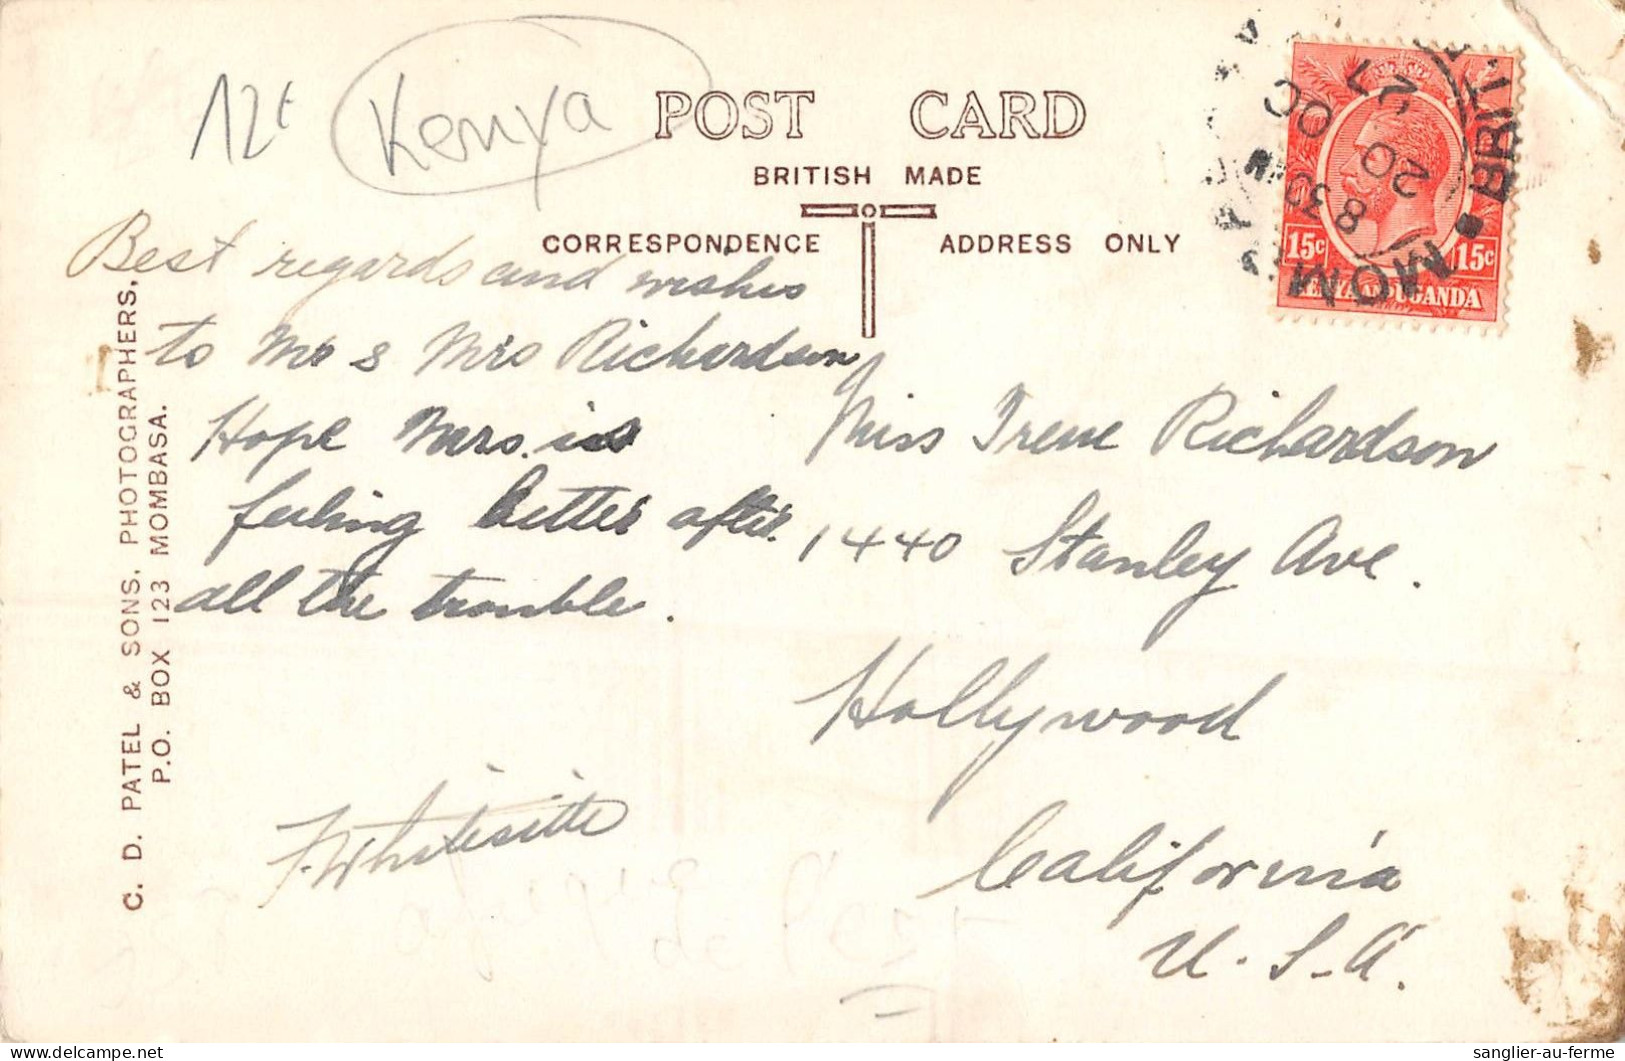 12€
Kenya
POST CARD
BRITISH MADE
CORRESPONDENCE
ADDRESS ONLY
Best regards and wishes
to Mr & Mrs Richardson
Hope Mrs. is
feeling better after
all the trouble.
F. Whitesitte
Miss Irene Richardson
1440 Stanley Ave.
Hollywood
California
U.S.A.
C. D. PATEL & SONS, PHOTOGRAPHERS,
P.O. BOX 123 MOMBASA.
15c 15c
KENYA AND UGANDA
MOM
BRIT.
8 30
20 OC
27
sanglier-au-ferme